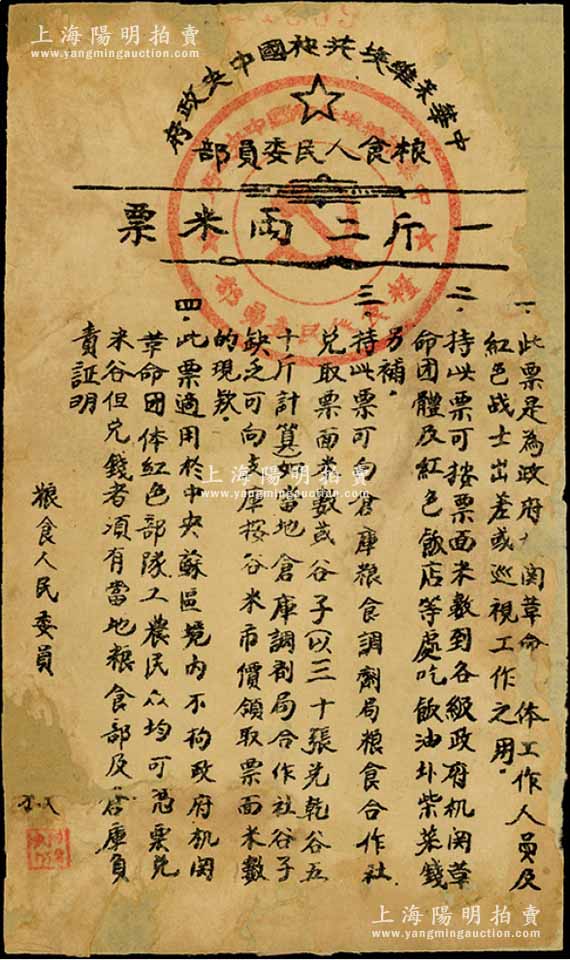 上海陽明拍賣
www.yangmingauction.com
中華蘇維埃共和國中央政府
粮食人民委員部
一斤二両米票
一.此票是為政府机関革命 体工作人員及
紅色战士出差或巡視工作之用。
二.持此票可按票面米数到各級政府机関革
命团體及紅色飯店等處吃飯油圤柴菜錢
另補。
三.持此票可向倉庫粮食調劑局粮食合作社
兌取票面米数或谷子(以三十張兌乾谷五
十斤計算)如當地倉庫調剂局合作社谷子
缺乏可向支庫按谷米市價領取票面米数
的現欵。
四.此票適用於中央蘇區境内不拘政府机関
革命团体紅色部隊工農民众均可憑票兌
米谷但兌錢者須有當地粮食部及倉庫負
責証明
粮食人民委員
上海陽明拍賣
www.yangmingauction.com
上海陽明拍賣
www.yangmingauction.com